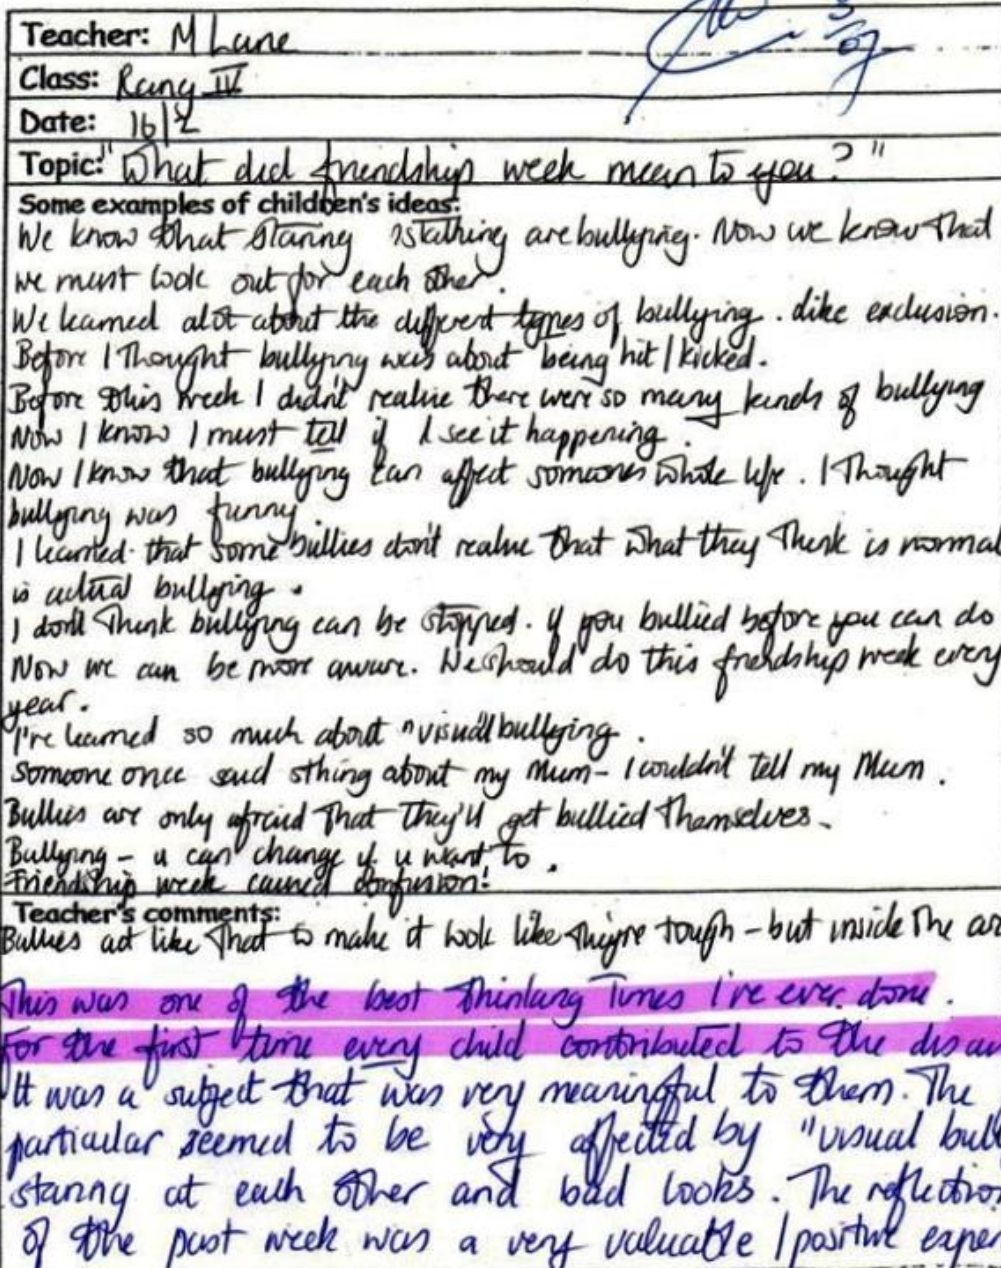 3/07
Teacher: M Lane
Class: Rang IV
Date: 16/2
Topic: "What did friendship week mean to you?"
Some examples of children's ideas:
We know that staring stalking are bullying. Now we know that
we must look out for each other.
We learned alot about the different types of bullying. Like exclusion.
Before I thought bullying was about being hit/kicked.
Before this week I didn't realise there were so many kinds of bullying
Now I know I must tell if I see it happening.
Now I know that bullying can affect someones whole life. I thought
bullying was funny.
I learned that some bullies don't realise that what they think is normal
is actual bullying.
I don't think bullying can be stopped. if you bullied before you can do
Now we can be more aware. We should do this friendship week every
year.
I've learned so much about "visual bullying.
Someone once said sthing about my Mum - I couldn't tell my Mum.
Bullies are only afraid that they'll get bullied themselves.
Bullying - u can change if u want to.
Friendship week caused confusion!
Teacher's comments:
Bullies act like that to make it look like they're tough - but inside the
This was one of the best Thinking Times I've ever done.
For the first time every child contributed to the
It was a subject that was very meaningful to them. The
particular seemed to be very affected by "visual
staring at each other and bad looks. The reflection
of the past week was a very valuable/positive